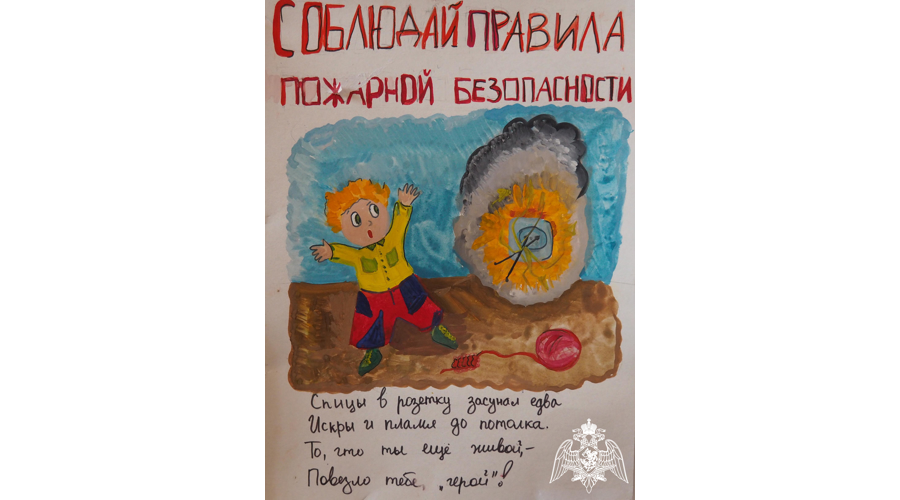 СОБЛЮДАЙ ПРАВИЛА
ПОЖАРНОЙ БЕЗОПАСНОСТИ
Спицы в розетку засунал едва
Искры и пламя до потолка.
То, что ты ещё живой,-
Повезло тебе „герой"!